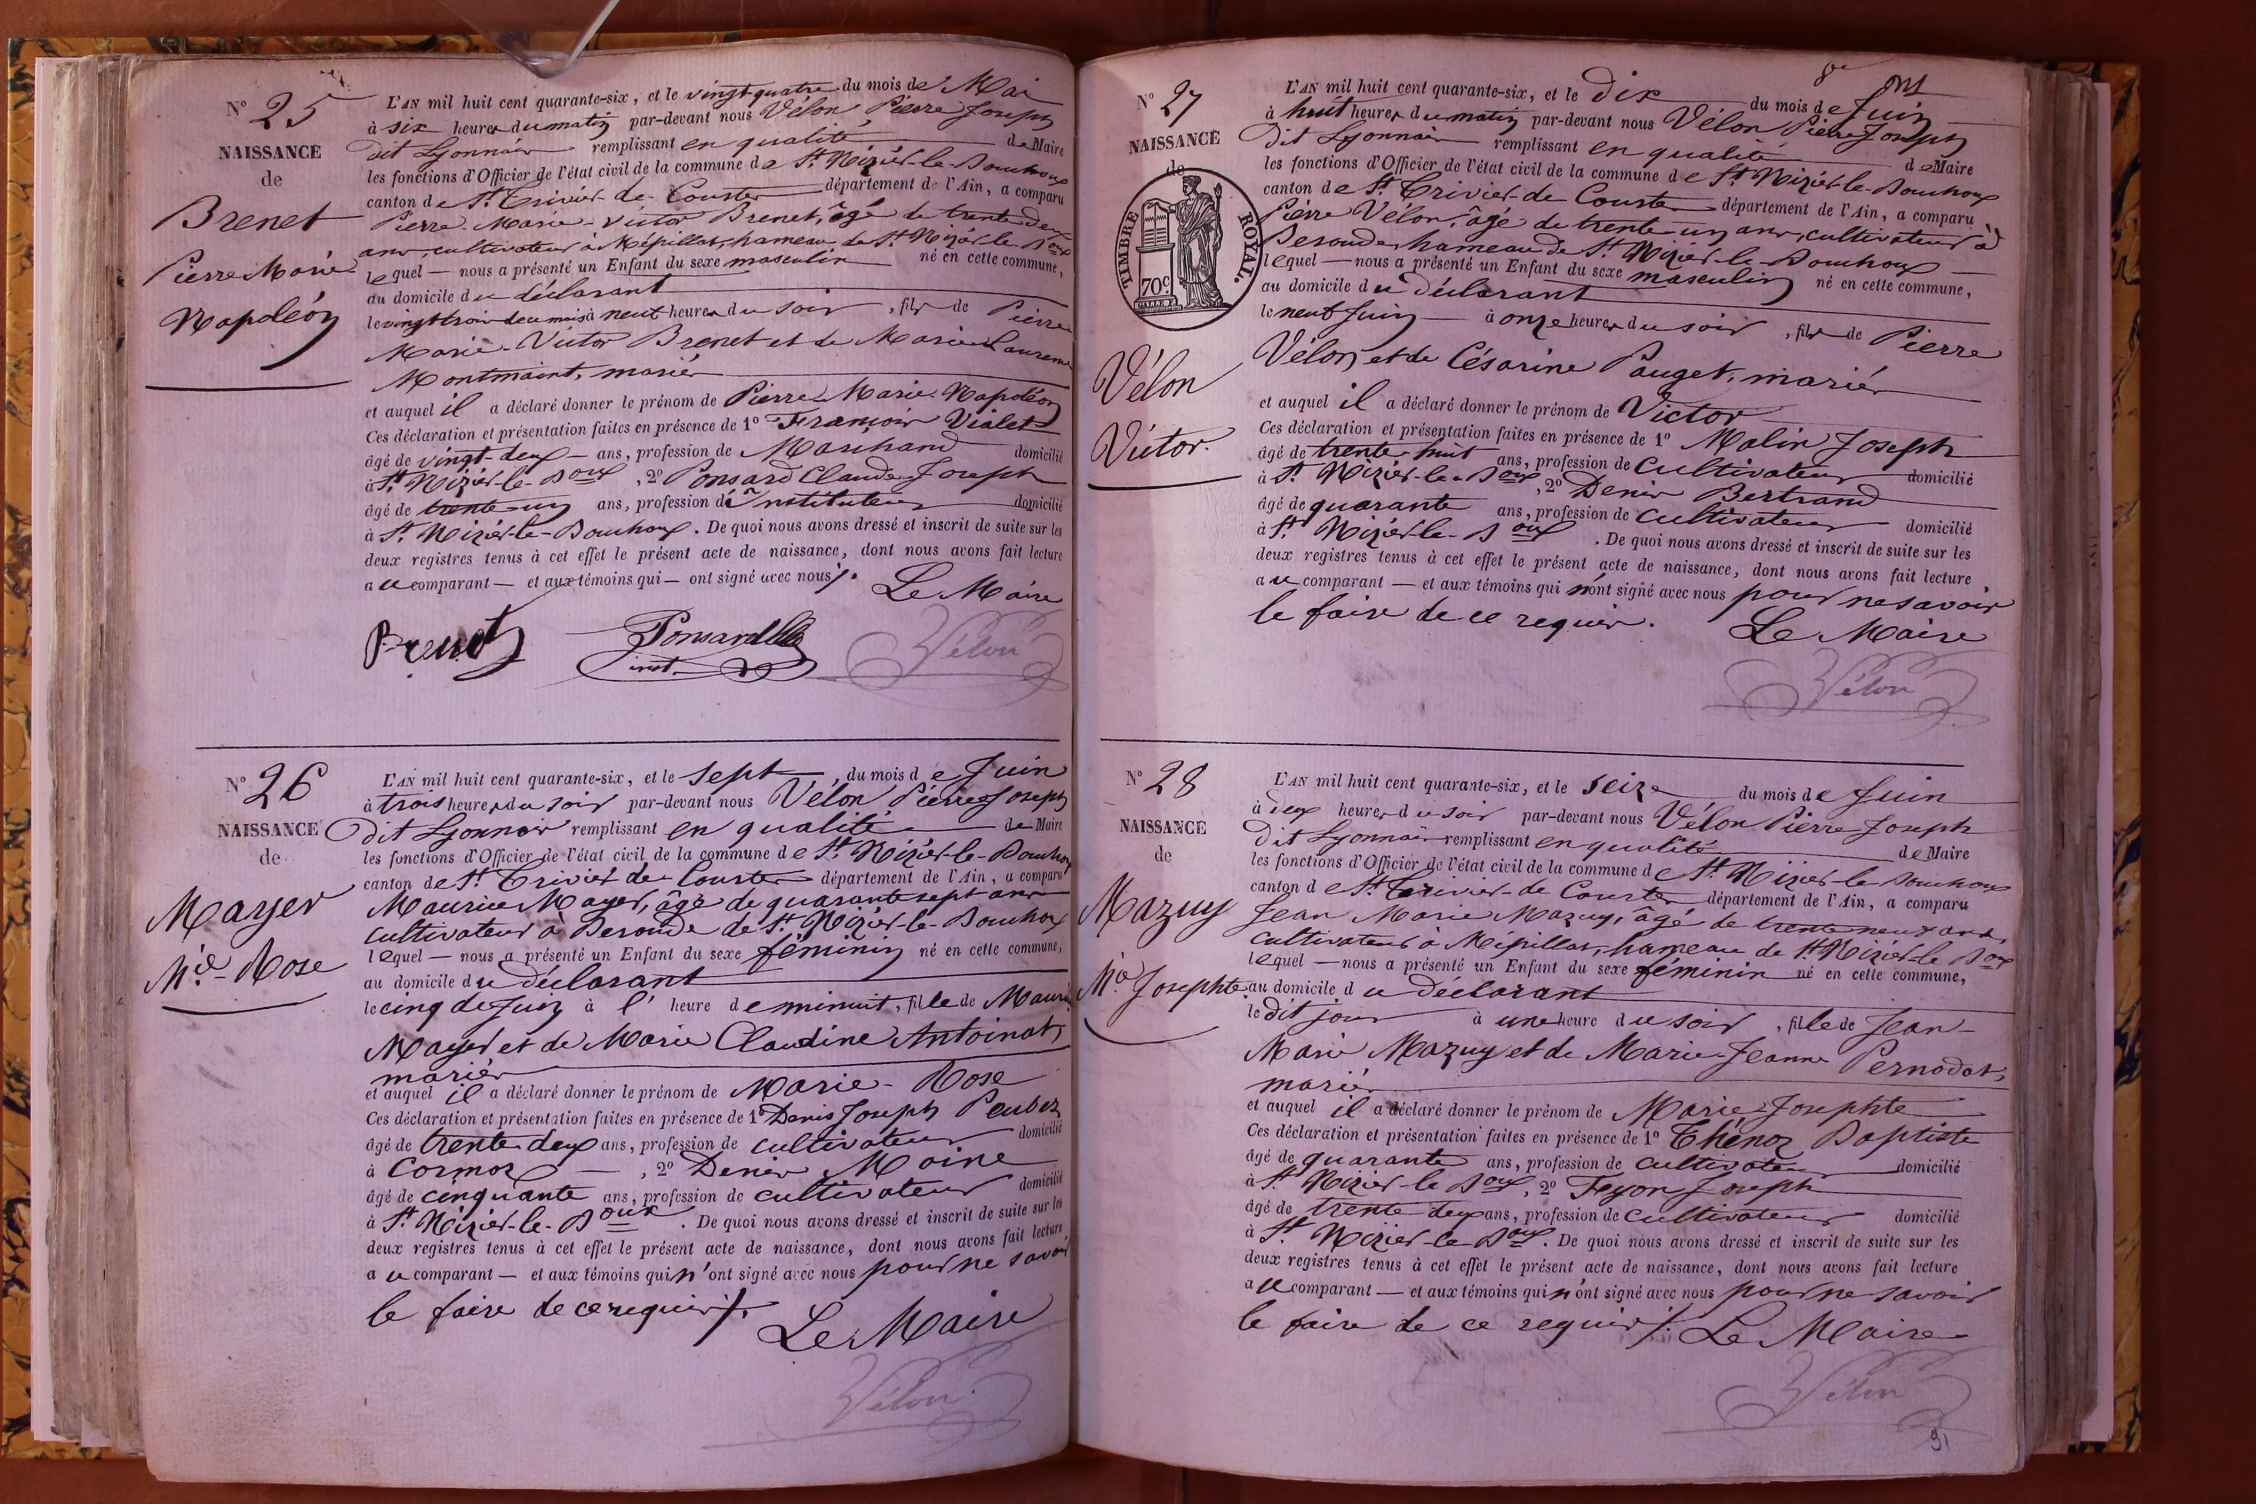 N° 25
NAISSANCE
de
Brenet
Pierre Marie
Napoléon
L'AN mil huit cent quarante-six, et le vingt quatre du mois de Mai
à six heures du matin par-devant nous Vélon Pierre Joseph
dit Lyonnais remplissant en qualité de Maire
les fonctions d'Officier de l'état civil de la commune de St. Nizier-le-Bouchoux
canton de St. Trivier-de-Courtes département de l'Ain, a comparu
Pierre-Marie-Victor Brenet, âgé de trente deux
ans, cultivateur à Mépillat, hameau de St. Nizier-le-Boux
lequel — nous a présenté un Enfant du sexe masculin né en cette commune,
au domicile du déclarant
le vingt trois du mois à neuf heures du soir, fils de Pierre
Marie-Victor Brenet et de Marie Laurence
Montmaint, mariés
et auquel il a déclaré donner le prénom de Pierre-Marie-Napoléon
Ces déclaration et présentation faites en présence de 1° François Vialet
âgé de vingt-deux — ans, profession de Marchand domicilié
à St. Nizier-le-Boux, 2° Ponsard Claude Joseph
âgé de trente-un ans, profession d'instituteur domicilié
à St. Nizier-le-Bouchoux. De quoi nous avons dressé et inscrit de suite sur les
deux registres tenus à cet effet le présent acte de naissance, dont nous avons fait lecture
au comparant — et aux témoins qui — ont signé avec nous /.
Le Maire
Brenet Ponsard
inst. Vélon
N° 26
NAISSANCE
de
Mayer
Mie-Rose
L'AN mil huit cent quarante-six, et le sept, du mois de Juin
à trois heures du soir par-devant nous Vélon Pierre Joseph
dit Lyonnais remplissant en qualité de Maire
les fonctions d'Officier de l'état civil de la commune de St. Nizier-le-Bouchoux
canton de St. Trivier de Courtes département de l'Ain, a comparu
Maurice Mayer, âgé de quarante sept ans
cultivateur à Besonde de St. Nizier-le-Bouchoux
lequel — nous a présenté un Enfant du sexe féminin né en cette commune,
au domicile du déclarant
le cinq de Juin à l' heure de minuit, fille de Maurice
Mayer et de Marie Claudine Antoinat,
mariés
et auquel il a déclaré donner le prénom de Marie-Rose
Ces déclaration et présentation faites en présence de 1° Denis Joseph
âgé de trente deux ans, profession de cultivateur domicilié
à Cormoz —, 2° Denis Moine
âgé de cinquante ans, profession de cultivateur domicilié
à St. Nizier-le-Boux. De quoi nous avons dressé et inscrit de suite sur les
deux registres tenus à cet effet le présent acte de naissance, dont nous avons fait lecture
au comparant — et aux témoins qui n'ont signé avec nous pour ne savoir
le faire de ce requis /.
Le Maire
Vélon
N° 27
NAISSANCE
de
TIMBRE ROYAL.
70c.
Vélon
Victor.
L'AN mil huit cent quarante-six, et le dix du mois de Juin
à huit heures du matin par-devant nous Vélon Pierre Joseph
dit Lyonnais remplissant en qualité de Maire
les fonctions d'Officier de l'état civil de la commune de St. Nizier-le-Bouchoux
canton de St. Trivier-de Courtes département de l'Ain, a comparu
Pierre Vélon, âgé de trente un ans, cultivateur à
Besonde hameau de St. Nizier-le-Bouchoux
lequel — nous a présenté un Enfant du sexe masculin né en cette commune,
au domicile du déclarant
le neuf Juin — à onze heures du soir, fils de Pierre
Vélon et de Césarine Pauget, mariés
et auquel il a déclaré donner le prénom de Victor
Ces déclaration et présentation faites en présence de 1° Malin Joseph
âgé de trente-huit ans, profession de cultivateur domicilié
à St. Nizier-le-Boux, 2° Denis Bertrand
âgé de quarante ans, profession de cultivateur domicilié
à St. Nizier-le-Boux. De quoi nous avons dressé et inscrit de suite sur les
deux registres tenus à cet effet le présent acte de naissance, dont nous avons fait lecture
au comparant — et aux témoins qui n'ont signé avec nous pour ne savoir
le faire de ce requis.
Le Maire
Vélon
N° 28
NAISSANCE
de
Mazuy
Mie Josephte
L'AN mil huit cent quarante-six, et le seize du mois de Juin
à deux heures du soir par-devant nous Vélon Pierre Joseph
dit Lyonnais remplissant en qualité de Maire
les fonctions d'Officier de l'état civil de la commune de St. Nizier-le-Bouchoux
canton de St. Trivier-de Courtes département de l'Ain, a comparu
Jean Marie Mazuy, âgé de trente neuf ans,
cultivateur à Mépillat, hameau de St. Nizier-le-Boux
lequel — nous a présenté un Enfant du sexe féminin né en cette commune,
au domicile du déclarant
le dit jour à une heure du soir, fille de Jean-
Marie Mazuy et de Marie-Jeanne Pernodat,
mariés
et auquel il a déclaré donner le prénom de Marie-Josephte
Ces déclaration et présentation faites en présence de 1° Thénoz Baptiste
âgé de quarante ans, profession de cultivateur domicilié
à St. Nizier-le Boux, 2° Feyon Joseph
âgé de trente-deux ans, profession de cultivateur domicilié
à St. Nizier-le-Boux. De quoi nous avons dressé et inscrit de suite sur les
deux registres tenus à cet effet le présent acte de naissance, dont nous avons fait lecture
au comparant — et aux témoins qui n'ont signé avec nous pour ne savoir
le faire de ce requis /. Le Maire
Vélon